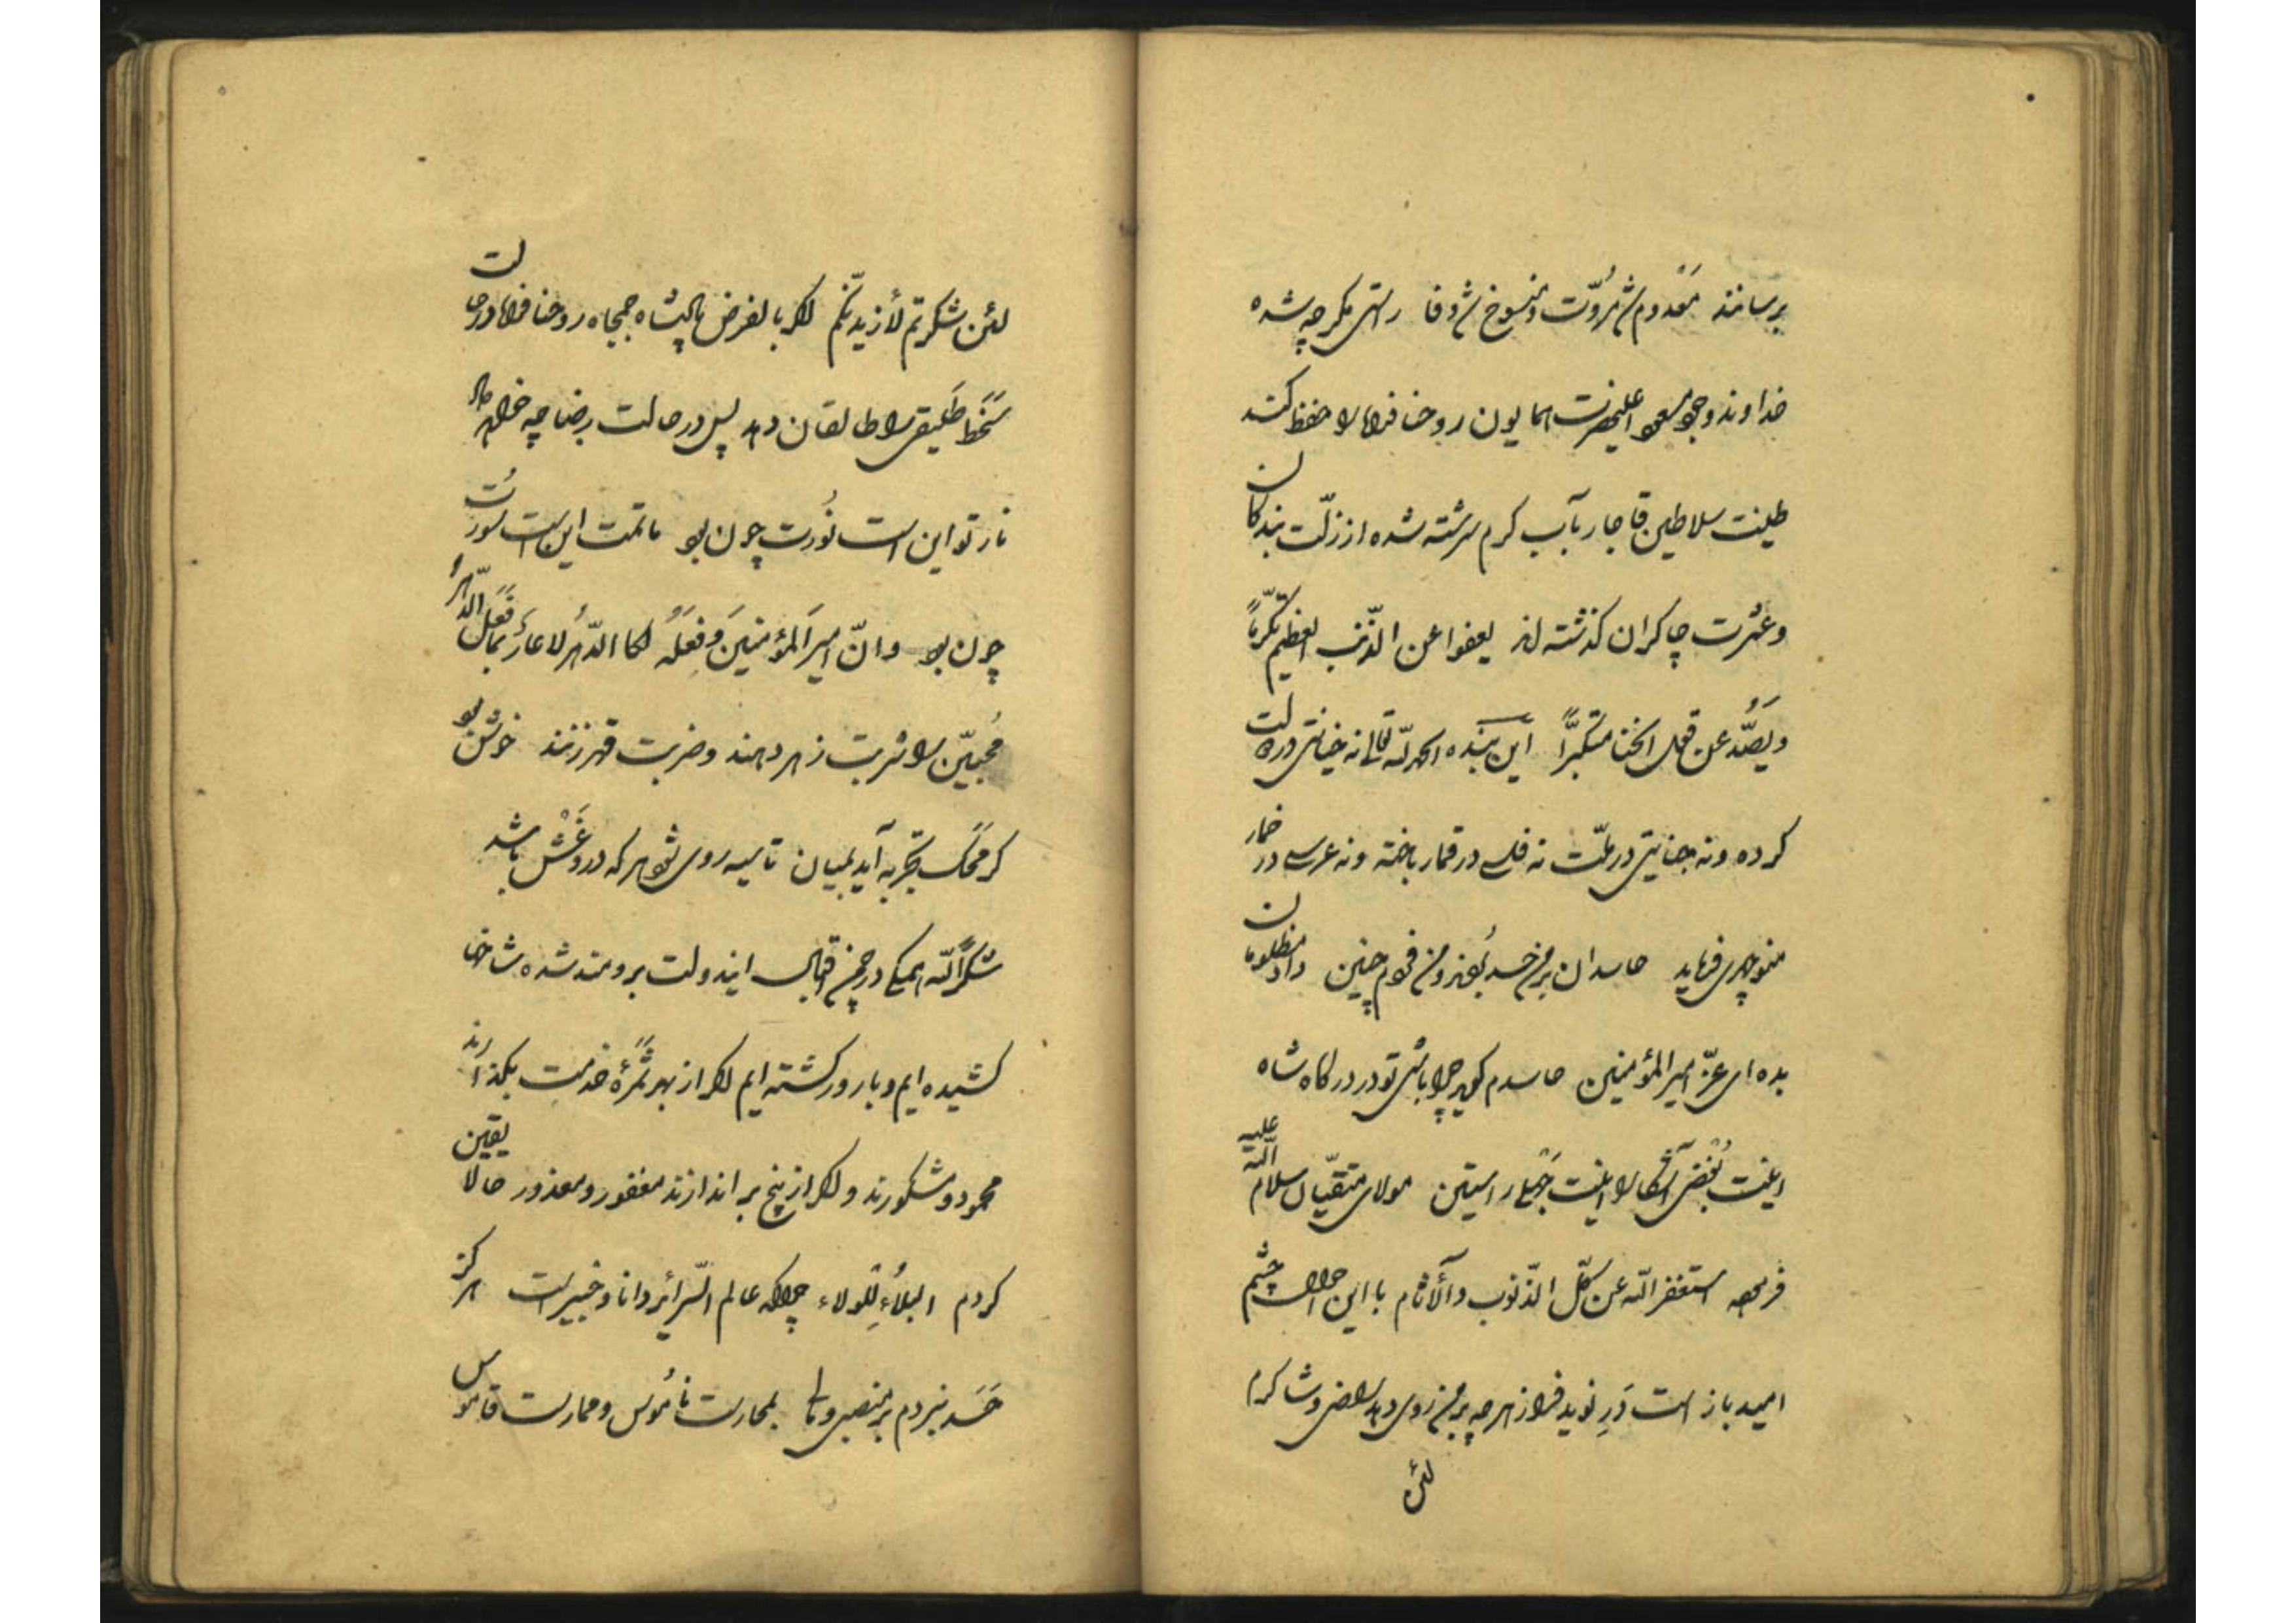 برسانند معدوم شد مروّت و منسوخ شد وفا راستی مگر چه شده
خداوند وجود مسعود اعلیحضرت همایون روحنا فداه را حفظ کند
طینت سلاطین قاجار بآب کرم سرشته شده از زلّت بندگان
وعثرت چاکران گذشته‌اند یعفوا عن الذّنب العظیم تکرّماً
ویصدّ عن قول الخنا متکبّراً این بنده الحمدللّه تعالی نه خیانتی در دولت
کرده و نه جنایتی در ملّت نه فلسی در قمار باخته و نه عرسی در خمار
منوچهری فرماید حاسدان بر من حسد بردند و من فردم چنین داد مظلومان
بده ای عزّ امیرالمؤمنین حاسدم گوید چرا باشی تو در درگاه شاه
اینت بغض آشکارا اینت جهل راستین مولای متّقیان سلام اللّه علیه
فرموده استغفر اللّه عن کلّ الذّنوب والآثام با این احوال چشم
امید باز است و در نوید فراز هرچه بر من روی دهد راضی و شاکرم
لئن
لئن شکرتم لأزیدنّکم اگر بالفرض پادشاه جمجاه روحنا فداه در حالت
سخط طلیقی را طالقان دهد پس در حالت رضا چه خواهد داد
نار تو این است نورت چون بود ماتمت این است سورت
چون بود وانّ امیرالمؤمنین وفعله لکا الدّهر لا عار بما فعل الدّهر
محبّین را شربت زهر دهند و ضربت قهر زنند خوش بود
گر محک تجربه آید بمیان تا سیه روی شود هرکه در او غش باشد
شکراً للّه همگی در چمن اقبال ایندولت برومند شده شاخها
کشیده ایم و بارور گشته ایم اگر از بهر ثمرهٔ خدمت بگذارند
محمود و مشکورند و اگر از بیخ براندازند مغفور و معذور حالا یقین
کردم البلاء للولاء چراکه عالم السّرائر دانا و خبیر است هرگز
حسد نبردم بر منصبی و مالی بمحارست ناموس و ممارست قاموس